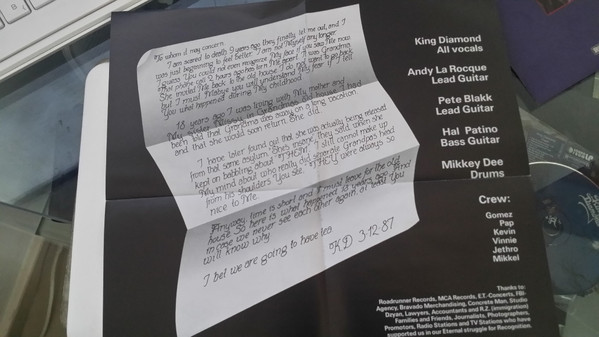 To whom it may concern
I am scared to death, 9 years ago they finally let me out, and I
was just beginning to feel better. I am not Myself any longer
I guess. You could not even recognize My face if you saw Me now.
That phone call 2 hours ago has torn Me apart. It was Grandma.
She invited Me back to the old house. I do not want to go back,
but I must. Maybe you will understand My fear if I tell
you what happened during My childhood.
18 years ago I was living with My mother and
My sister Missy in Grandma's old house. I had
been told that Grandma was away on a long vacation
and that she would soon return. She did.
I have later found out that she was actually being released
from that asylum. She's insane, they said, when she
kept on babbling about "THEM". I still cannot make up
My mind about who really did separate Grandpa's head
from his shoulders you see. THEY were always so
nice to Me.
Anyway, time is short and I must leave for the old
house. So here is what happened 18 years ago. And
in case we never see each other again, at least you
will know why
I bet we are going to have tea
KD 3-12-87
King Diamond
All vocals
Andy La Rocque
Lead Guitar
Pete Blakk
Lead Guitar
Hal Patino
Bass Guitar
Mikkey Dee
Drums
Crew:
Gomez
Pap
Kevin
Vinnie
Jethro
Mikkel
Thanks to:
Roadrunner Records, MCA Records, E.T.-Concerts, FBI-
Agency, Bravado Merchandising, Concrete Man. Studio
Dzyan, Lawyers, Accountants and R.Z. (immigration)
Families and Friends, Journalists, Photographers,
Promotors, Radio Stations and TV Stations who have
supported us in our Eternal struggle for Recognition.